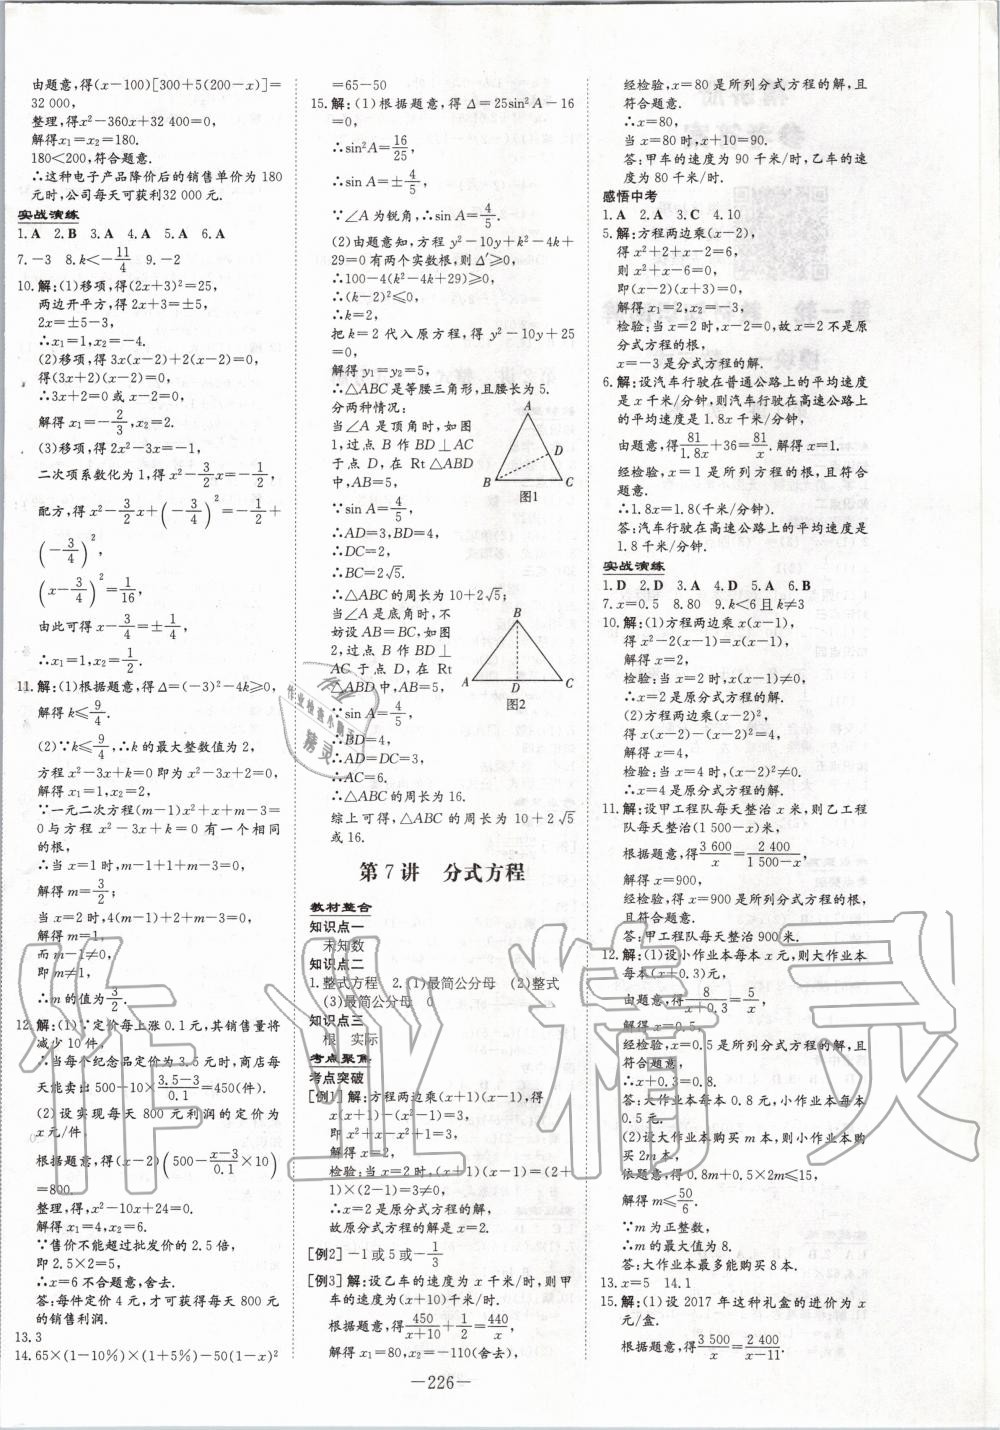 由题意,得(x-100)[300+5(200-x)]=
32 000,
整理,得x²-360x+32 400=0,
解得x₁=x₂=180.
180<200,符合题意.
∴这种电子产品降价后的销售单价为 180
元时,公司每天可获利32 000 元.
实战演练
1.A 2.B 3.A 4.A 5.A 6.A
7.-3 8.k<-11/4 9.-2
10.解:(1)移项,得(2x+3)²=25,
两边开平方,得2x+3=±5,
2x=±5-3,
∴x₁=1,x₂=-4.
(2)移项,得 3x(x-2)+2(x-2)=0,
得(3x+2)(x-2)=0,
∴3x+2=0或x-2=0,
解得 x₁=-2/3,x₂=2.
(3)移项,得 2x²-3x=-1,
二次项系数化为 1,得 x²-3/2x=-1/2,
配方,得 x²-3/2x+(-3/4)²=-1/2+
(-3/4)²,
(x-3/4)²=1/16,
由此可得 x-3/4=±1/4,
∴x₁=1,x₂=1/2.
11.解:(1)根据题意,得Δ=(-3)²-4k≥0,
解得k≤9/4.
(2)∵k≤9/4,∴k 的最大整数值为 2,
方程 x²-3x+k=0 即为 x²-3x+2=0,
解得x₁=1,x₂=2,
∵一元二次方程(m-1)x²+x+m-3=
0与方程 x²-3x+k=0 有一个相同
的根,
∴当 x=1 时,m-1+1+m-3=0,
解得 m=3/2;
当 x=2 时,4(m-1)+2+m-3=0,
解得 m=1,
而 m-1≠0,
即 m≠1,
∴m 的值为3/2.
12.解:(1)∵定价每上涨 0.1 元,其销售量将
减少 10 件,
∴当每个纪念品定价为 3.5 元时,商店每
天能卖出 500-10×(3.5-3)/0.1=450(件).
(2)设实现每天 800 元利润的定价为
x元/件,
根据题意,得(x-2)(500-(x-3)/0.1×10)
=800.
整理,得 x²-10x+24=0.
解得 x₁=4,x₂=6.
∵售价不能超过批发价的 2.5 倍,
即 2.5×2=5,
∴x=6 不合题意,舍去.
答:每件定价 4 元,才可获得每天 800 元
的销售利润.
13.3
14.65×(1-10%)×(1+5%)-50(1-x)²
=65-50
15.解:(1)根据题意,得 Δ=25sin²A-16
=0,
∴sin²A=16/25,
∴sin A=±4/5,
∵∠A 为锐角,∴sin A=4/5.
(2)由题意知,方程 y²-10y+k²-4k+
29=0有两个实数根,则Δ′≥0,
∴100-4(k²-4k+29)≥0,
∴(k-2)²≤0,
∴k=2,
把 k=2 代入原方程,得 y²-10y+25
=0,
解得y₁=y₂=5,
∴△ABC是等腰三角形,且腰长为 5.
分两种情况:
当∠A 是顶角时,如图
1,过点 B 作 BD⊥AC
于点 D,在 Rt△ABD
中,AB=5,
∵sin A=4/5,
∴AD=3,BD=4,
∴DC=2,
∴BC=2√5.
∴△ABC 的周长为 10+2√5;
当∠A 是底角时,不
妨设 AB=BC,如图
2,过点 B 作 BD⊥
AC 于点 D,在 Rt
△ABD 中,AB=5,
∵sin A=4/5,
∴BD=4,
∴AD=DC=3,
∴AC=6.
∴△ABC 的周长为 16.
综上可得,△ABC 的周长为 10+2√5
或16.
A
D
B
C
图1
B
A
D
C
图2
第 7 讲 分式方程
教材整合
知识点一
未知数
知识点二
1.整式方程 2.(1)最简公分母 (2)整式
(3)最简公分母 0
知识点三
根 实际
考点聚焦
考点突破
[例1] 解:方程两边乘(x+1)(x-1),得
x(x+1)-(x²-1)=3,
即 x²+x-x²+1=3,
解得 x=2,
检验:当 x=2 时,(x+1)(x-1)=(2+
1)×(2-1)=3≠0,
∴x=2 是原方程的解,
故原分式方程的解是 x=2.
[例2] -1或5或-1/3
[例3] 解:设乙车的速度为 x 千米/时,则甲
车的速度为(x+10)千米/时.
根据题意,得450/(x+10)+1/2=440/x,
解得x₁=80,x₂=-110(舍去),
经检验,x=80 是所列分式方程的解,且
符合题意.
∴x=80,
当 x=80 时,x+10=90.
答:甲车的速度为 90 千米/时,乙车的速
度为 80千米/时.
感悟中考
1.A 2.A 3.C 4.10
5.解:方程两边乘(x-2),
得 x²+2+x-2=6,
则 x²+x-6=0,
即(x-2)(x+3)=0,
解得x₁=2,x₂=-3,
检验:当 x=2 时,x-2=0,故 x=2不是原
分式方程的根,
x=-3是分式方程的解.
6.解:设汽车行驶在普通公路上的平均速度
是 x 千米/分钟,则汽车行驶在高速公路上
的平均速度是 1.8x 千米/分钟,
由题意,得81/1.8x+36=81/x. 解得 x=1.
经检验,x=1 是所列方程的根,且符合
题意.
∴1.8x=1.8(千米/分钟).
答:汽车行驶在高速公路上的平均速度是
1.8 千米/分钟.
实战演练
1.D 2.D 3.A 4.D 5.A 6.B
7.x=0.5 8.80 9.k<6 且 k≠3
10.解:(1)方程两边乘 x(x-1),
得 x²-2(x-1)=x(x-1),
解得 x=2,
检验:当 x=2 时,x(x-1)≠0,
∴x=2是原分式方程的解.
(2)方程两边乘(x-2)²,
得 x(x-2)-(x-2)²=4,
解得 x=4,
检验:当 x=4 时,(x-2)²≠0.
∴x=4 是原方程的解.
11.解:设甲工程队每天整治 x 米,则乙工程
队每天整治(1 500-x)米,
根据题意,得3 600/x=2 400/(1 500-x),
解得x=900,
经检验,得 x=900 是所列分式方程的解,
且符合题意.
答:甲工程队每天整治 900 米.
12.解:(1)设小作业本每本 x 元,则大作业本
每本(x+0.3)元,
由题意,得8/(x+0.3)=5/x,
解得 x=0.5,
经检验,x=0.5 是所列分式方程的解,且
符合题意,
∴x+0.3=0.8.
答:大作业本每本 0.8 元,小作业本每本
0.5元.
(2)设大作业本购买 m 本,则小作业本购
买2m本,
依题意,得 0.8m+0.5×2m≤15,
解得 m≤50/6.
∵m 为正整数,
∴m 的最大值为 8.
答:大作业本最多能购买 8 本.
13.x=5 14.1
15.解:(1)设 2017 年这种礼盒的进价为 x
元/盒.
根据题意,得3 500/x=2 400/(x-11).
—226—
作业精灵